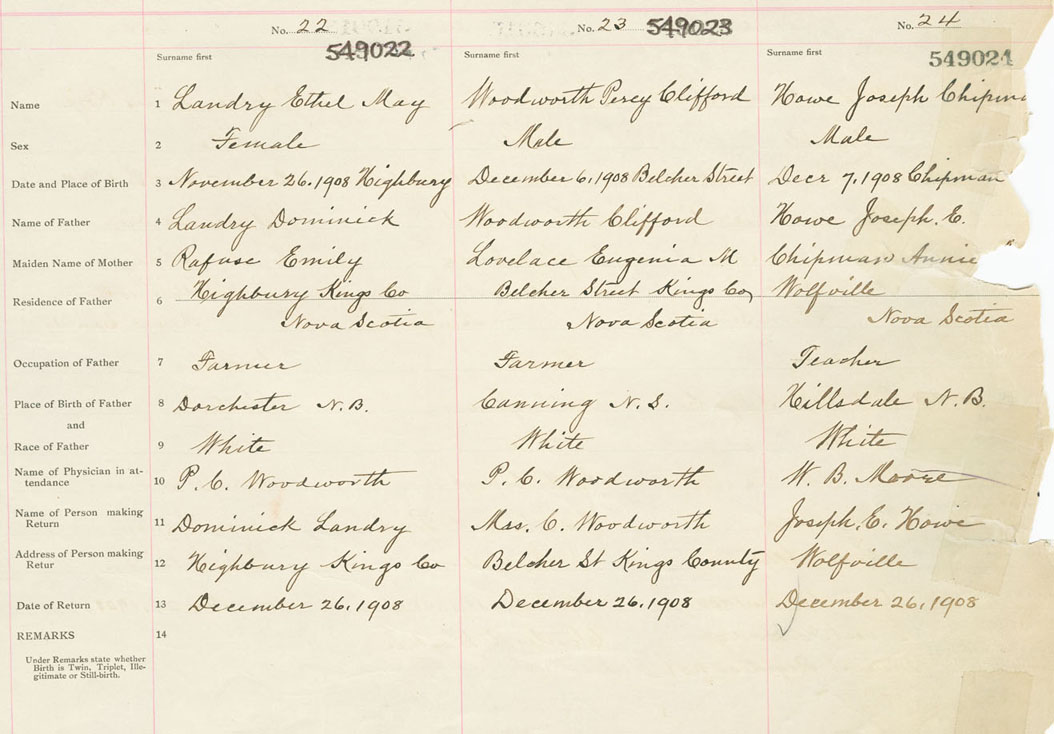 No. 22 No. 23 549023 No. 24
549022 549024
Surname first Surname first Surname first
Name 1 Landry Ethel May Woodworth Percy Clifford Howe Joseph Chipm
Sex 2 Female Male Male
Date and Place of Birth 3 November 26, 1908 Highbury December 6, 1908 Belcher Street Decr 7, 1908 Chipman
Name of Father 4 Landry Dominick Woodworth Clifford Howe Joseph. E.
Maiden Name of Mother 5 Rafuse Emily Lovelace Eugenia M Chipman Annie
Residence of Father 6 Highbury Kings Co Belcher Street Kings Co, Wolfville
Nova Scotia Nova Scotia Nova Scotia
Occupation of Father 7 Farmer Farmer Teacher
Place of Birth of Father 8 Dorchester N.B. Canning N.S. Hillsdale N.B.
and
Race of Father 9 White White White
Name of Physician in at-
tendance 10 P. C. Woodworth P. C. Woodworth W. B. Moore
Name of Person making
Return 11 Dominick Landry Mrs. C. Woodworth Joseph. E. Howe
Address of Person making
Retur 12 Highbury Kings Co Belcher St Kings County Wolfville
Date of Return 13 December 26, 1908 December 26, 1908 December 26, 1908
REMARKS 14
Under Remarks state whether
Birth is Twin, Triplet, Ille-
gitimate or Still-birth.